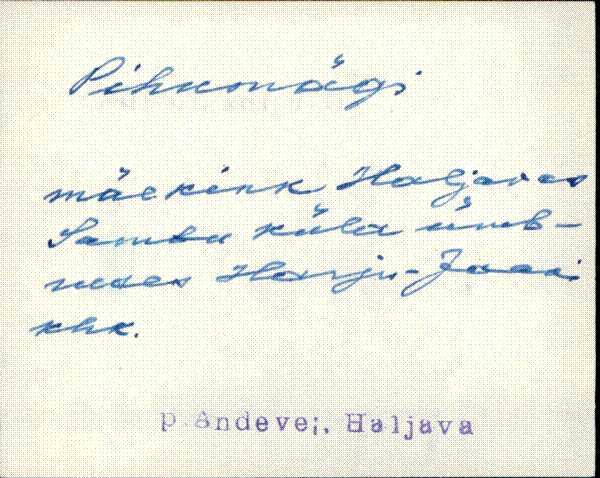 Pihumägi
mäekink Haljavas
Sambu küla ümb-
ruses Harju-Jaani
khk.
p. Andevei, Haljava